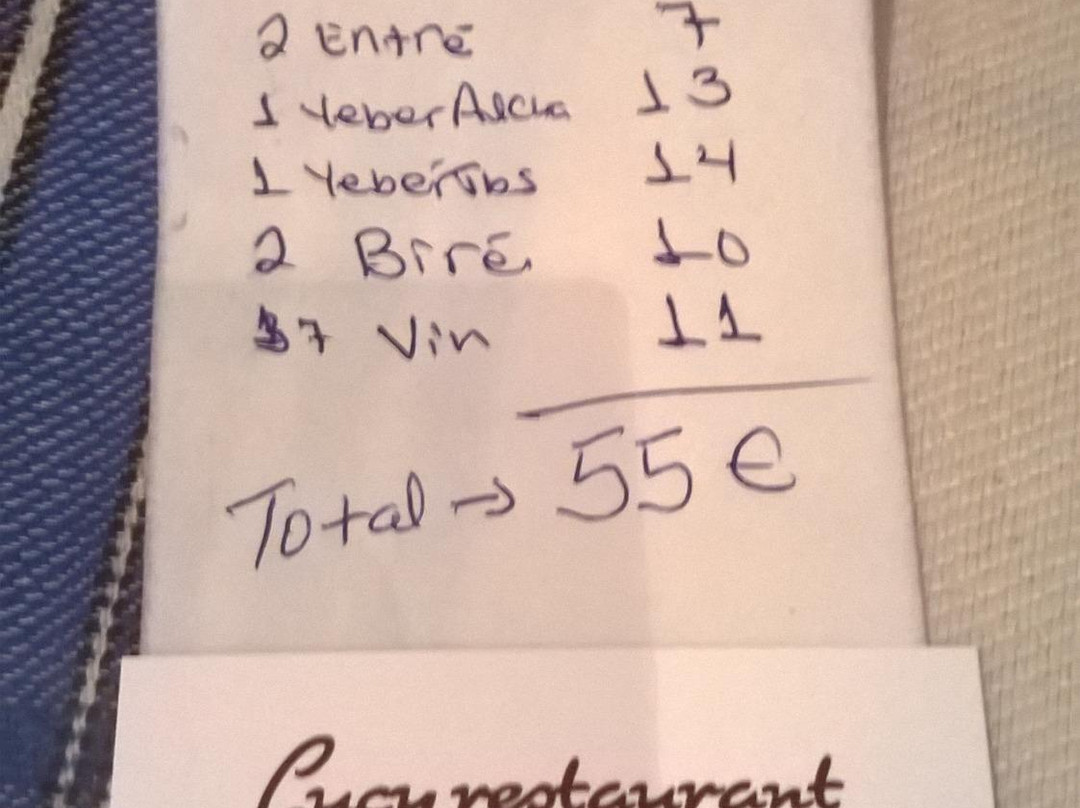 2 Entré 7
1 Yeber Alcha 13
1 Yebertibs 14
2 Biré 10
37 Vin 11
Total → 55 €
Cucu restaurant